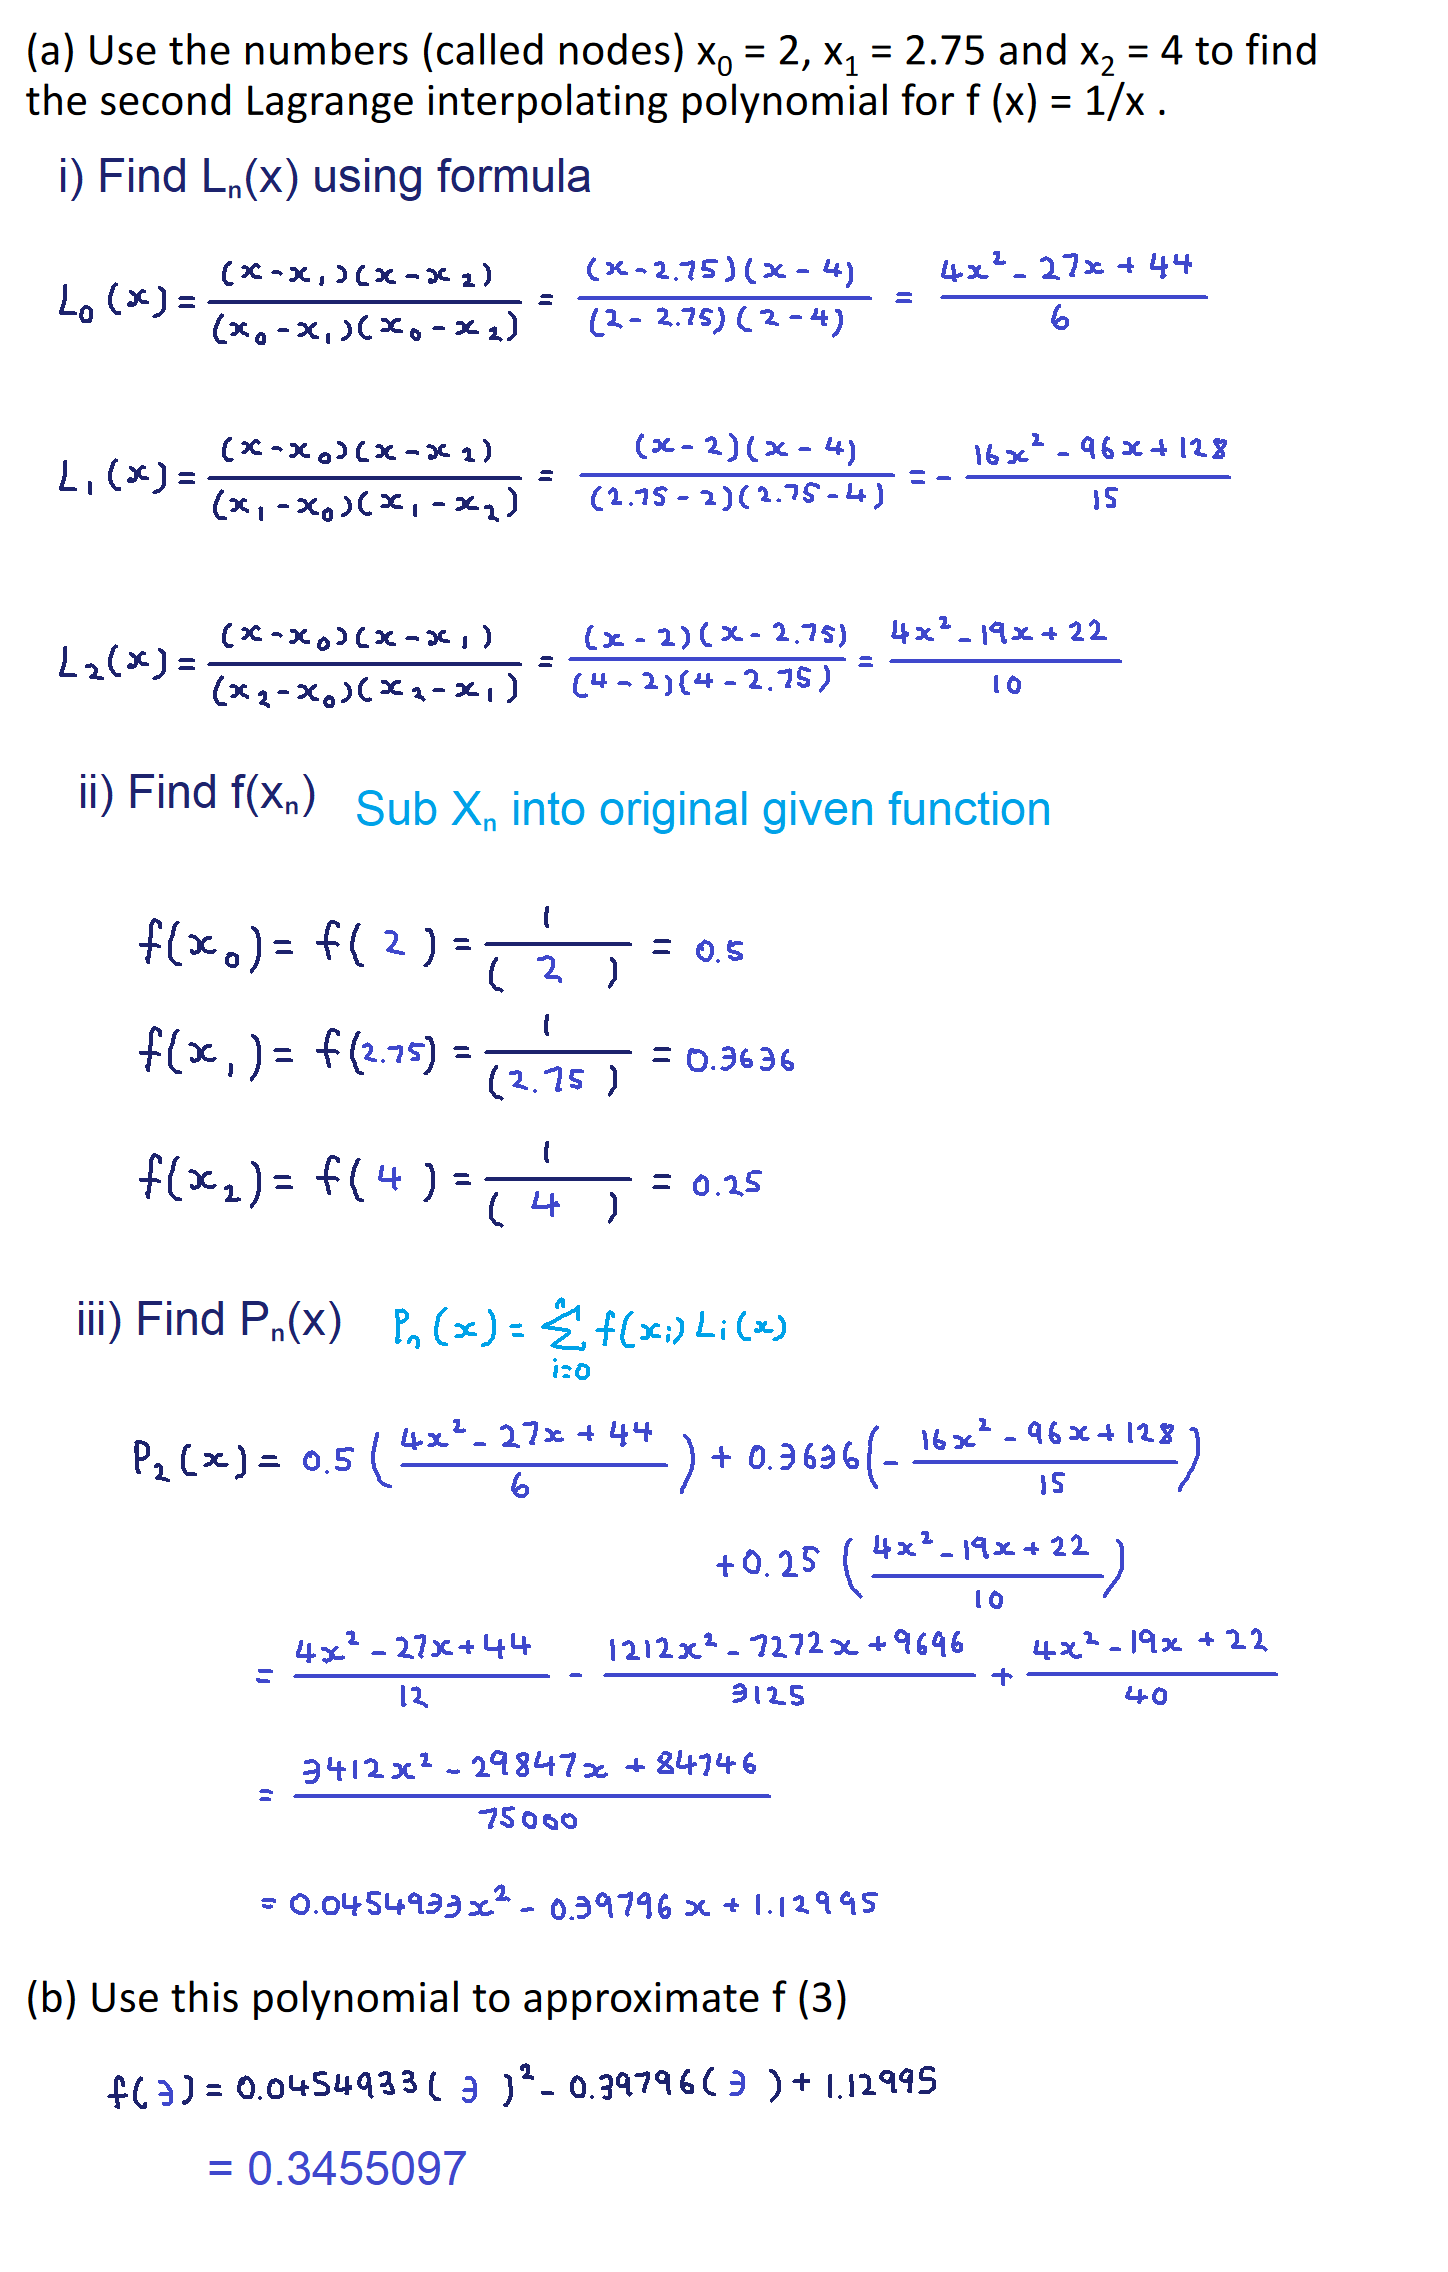 (a) Use the numbers (called nodes) x₀ = 2, x₁ = 2.75 and x₂ = 4 to find
the second Lagrange interpolating polynomial for f (x) = 1/x .
i) Find Lₙ(x) using formula
L₀(x) = (x-x₁)(x-x₂) / (x₀-x₁)(x₀-x₂) = (x-2.75)(x-4) / (2-2.75)(2-4) = 4x²-27x+44 / 6
L₁(x) = (x-x₀)(x-x₂) / (x₁-x₀)(x₁-x₂) = (x-2)(x-4) / (2.75-2)(2.75-4) = - 16x²-96x+128 / 15
L₂(x) = (x-x₀)(x-x₁) / (x₂-x₀)(x₂-x₁) = (x-2)(x-2.75) / (4-2)(4-2.75) = 4x²-19x+22 / 10
ii) Find f(xₙ) Sub Xₙ into original given function
f(x₀) = f( 2 ) = 1 / ( 2 ) = 0.5
f(x₁) = f(2.75) = 1 / (2.75 ) = 0.3636
f(x₂) = f( 4 ) = 1 / ( 4 ) = 0.25
iii) Find Pₙ(x) Pₙ(x) = Σ n i=0 f(xᵢ) Lᵢ(x)
P₂(x) = 0.5 ( 4x²-27x+44 / 6 ) + 0.3636 ( - 16x²-96x+128 / 15 )
+0.25 ( 4x²-19x+22 / 10 )
= 4x²-27x+44 / 12 - 1212x²-7272x+9696 / 3125 + 4x²-19x+22 / 40
= 3412x²-29847x+84746 / 75000
= 0.0454933x² - 0.39796x + 1.12995
(b) Use this polynomial to approximate f (3)
f(3) = 0.0454933( 3 )² - 0.39796( 3 ) + 1.12995
= 0.3455097